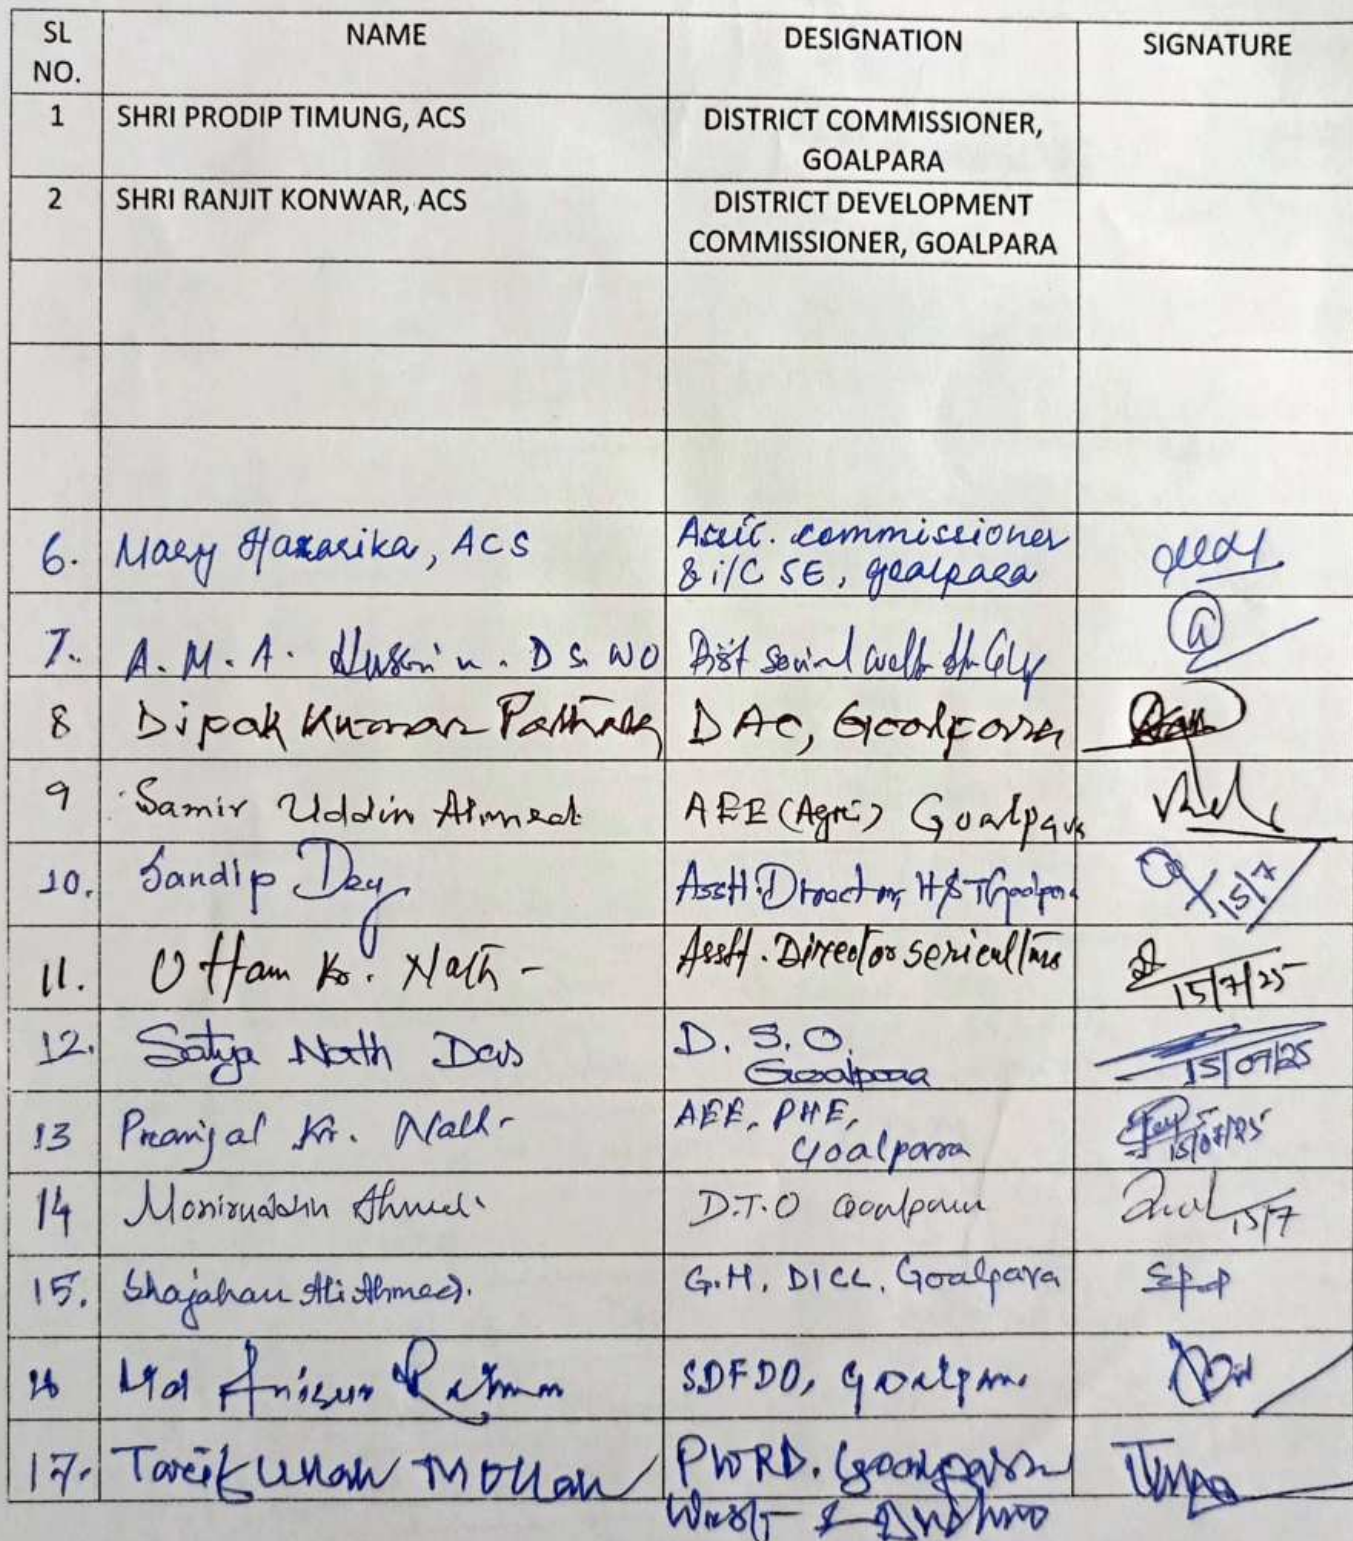 SL NO. NAME DESIGNATION SIGNATURE
1 SHRI PRODIP TIMUNG, ACS DISTRICT COMMISSIONER,
GOALPARA
2 SHRI RANJIT KONWAR, ACS DISTRICT DEVELOPMENT
COMMISSIONER, GOALPARA
6. Mary Hazarika, ACS Asstt. commissioner
& i/C SE, goalpara
7. A. M. A. Hussain. DSWO Dist social
8 Dipak Kumar Pathak DAO, Goalpara
9 Samir Uddin Ahmed AEE (Agri) Goalpara
10. Sandip Dey Asstt. Director, H&T Goalpara 15/7
11. Uttam Kr. Nath - Asstt. Director sericulture 15/7/25
12. Satya Nath Das D. S. O.
Goalpara 15/07/25
13 Pranjal Kr. Nath - AEE, PHE,
Goalpara 15/07/25
14 Moniruddin Ahmed. D.T.O Goalpara 15/7
15. Shajahan Ali Ahmed. G.M, DICC, Goalpara
16 Md Anisur Rahman SDFDO, Goalpara
17. Tarik Ullah Mollah PWRD. Goalpara
West &